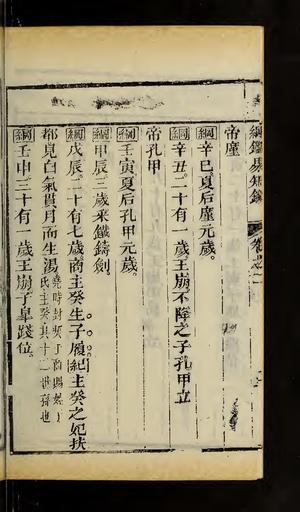 綱鑑易知錄
帝廑
綱辛巳夏后廑元歲。
綱辛丑。二十有一歲王崩不降之子孔甲立
帝孔甲
綱壬寅夏后孔甲元歲。
綱甲辰三歲采鐵鑄劍
綱戊辰。二十有七歲商主癸生子履紀主癸之妃扶
都見白氣貫月而生湯
氏主癸其十二世孫也
綱壬申三十有一歲王崩子皐踐位。